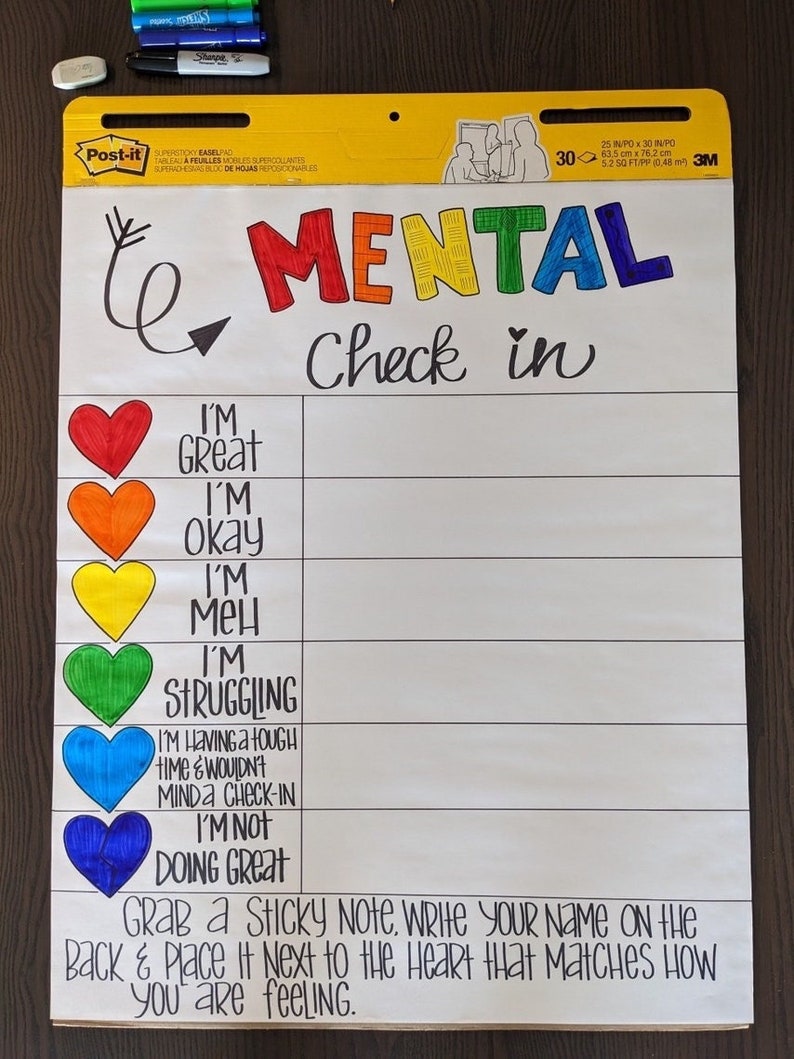 Scented
Sharpie
Post-it
SUPERSTICKY EASELPAD
TABLEAU À FEUILLES MOBILES SUPERCOLLANTES
SUPERADHESIVAS BLOC DE HOJAS REPOSICIONABLES
30
25 IN/PO x 30 IN/PO
63,5 cm x 76,2 cm
5.2 SQ FT/PP (0,48 m²)
3M
MENTAL
Check in
I'M
GReat
I'M
OKay
I'M
MeH
I'M
StRUGGLING
I'M HAVING a tOUGH
tIMe & WOULDN't
MIND a CHeCK-IN
I'M NOt
DOING GReat
GRaB a StICKY NOte, WRIte YOUR NaMe ON tHe
BaCK & PLaCe It NeXt tO tHe HeaRt tHat MatCHeS HOW
YOU aRe feeLING.